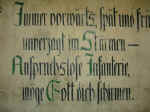 Immer vorwärts, spät und fern
unverzagt im Stürmen –
Anspruchslose Infanterie,
möge Gott dich schirmen.